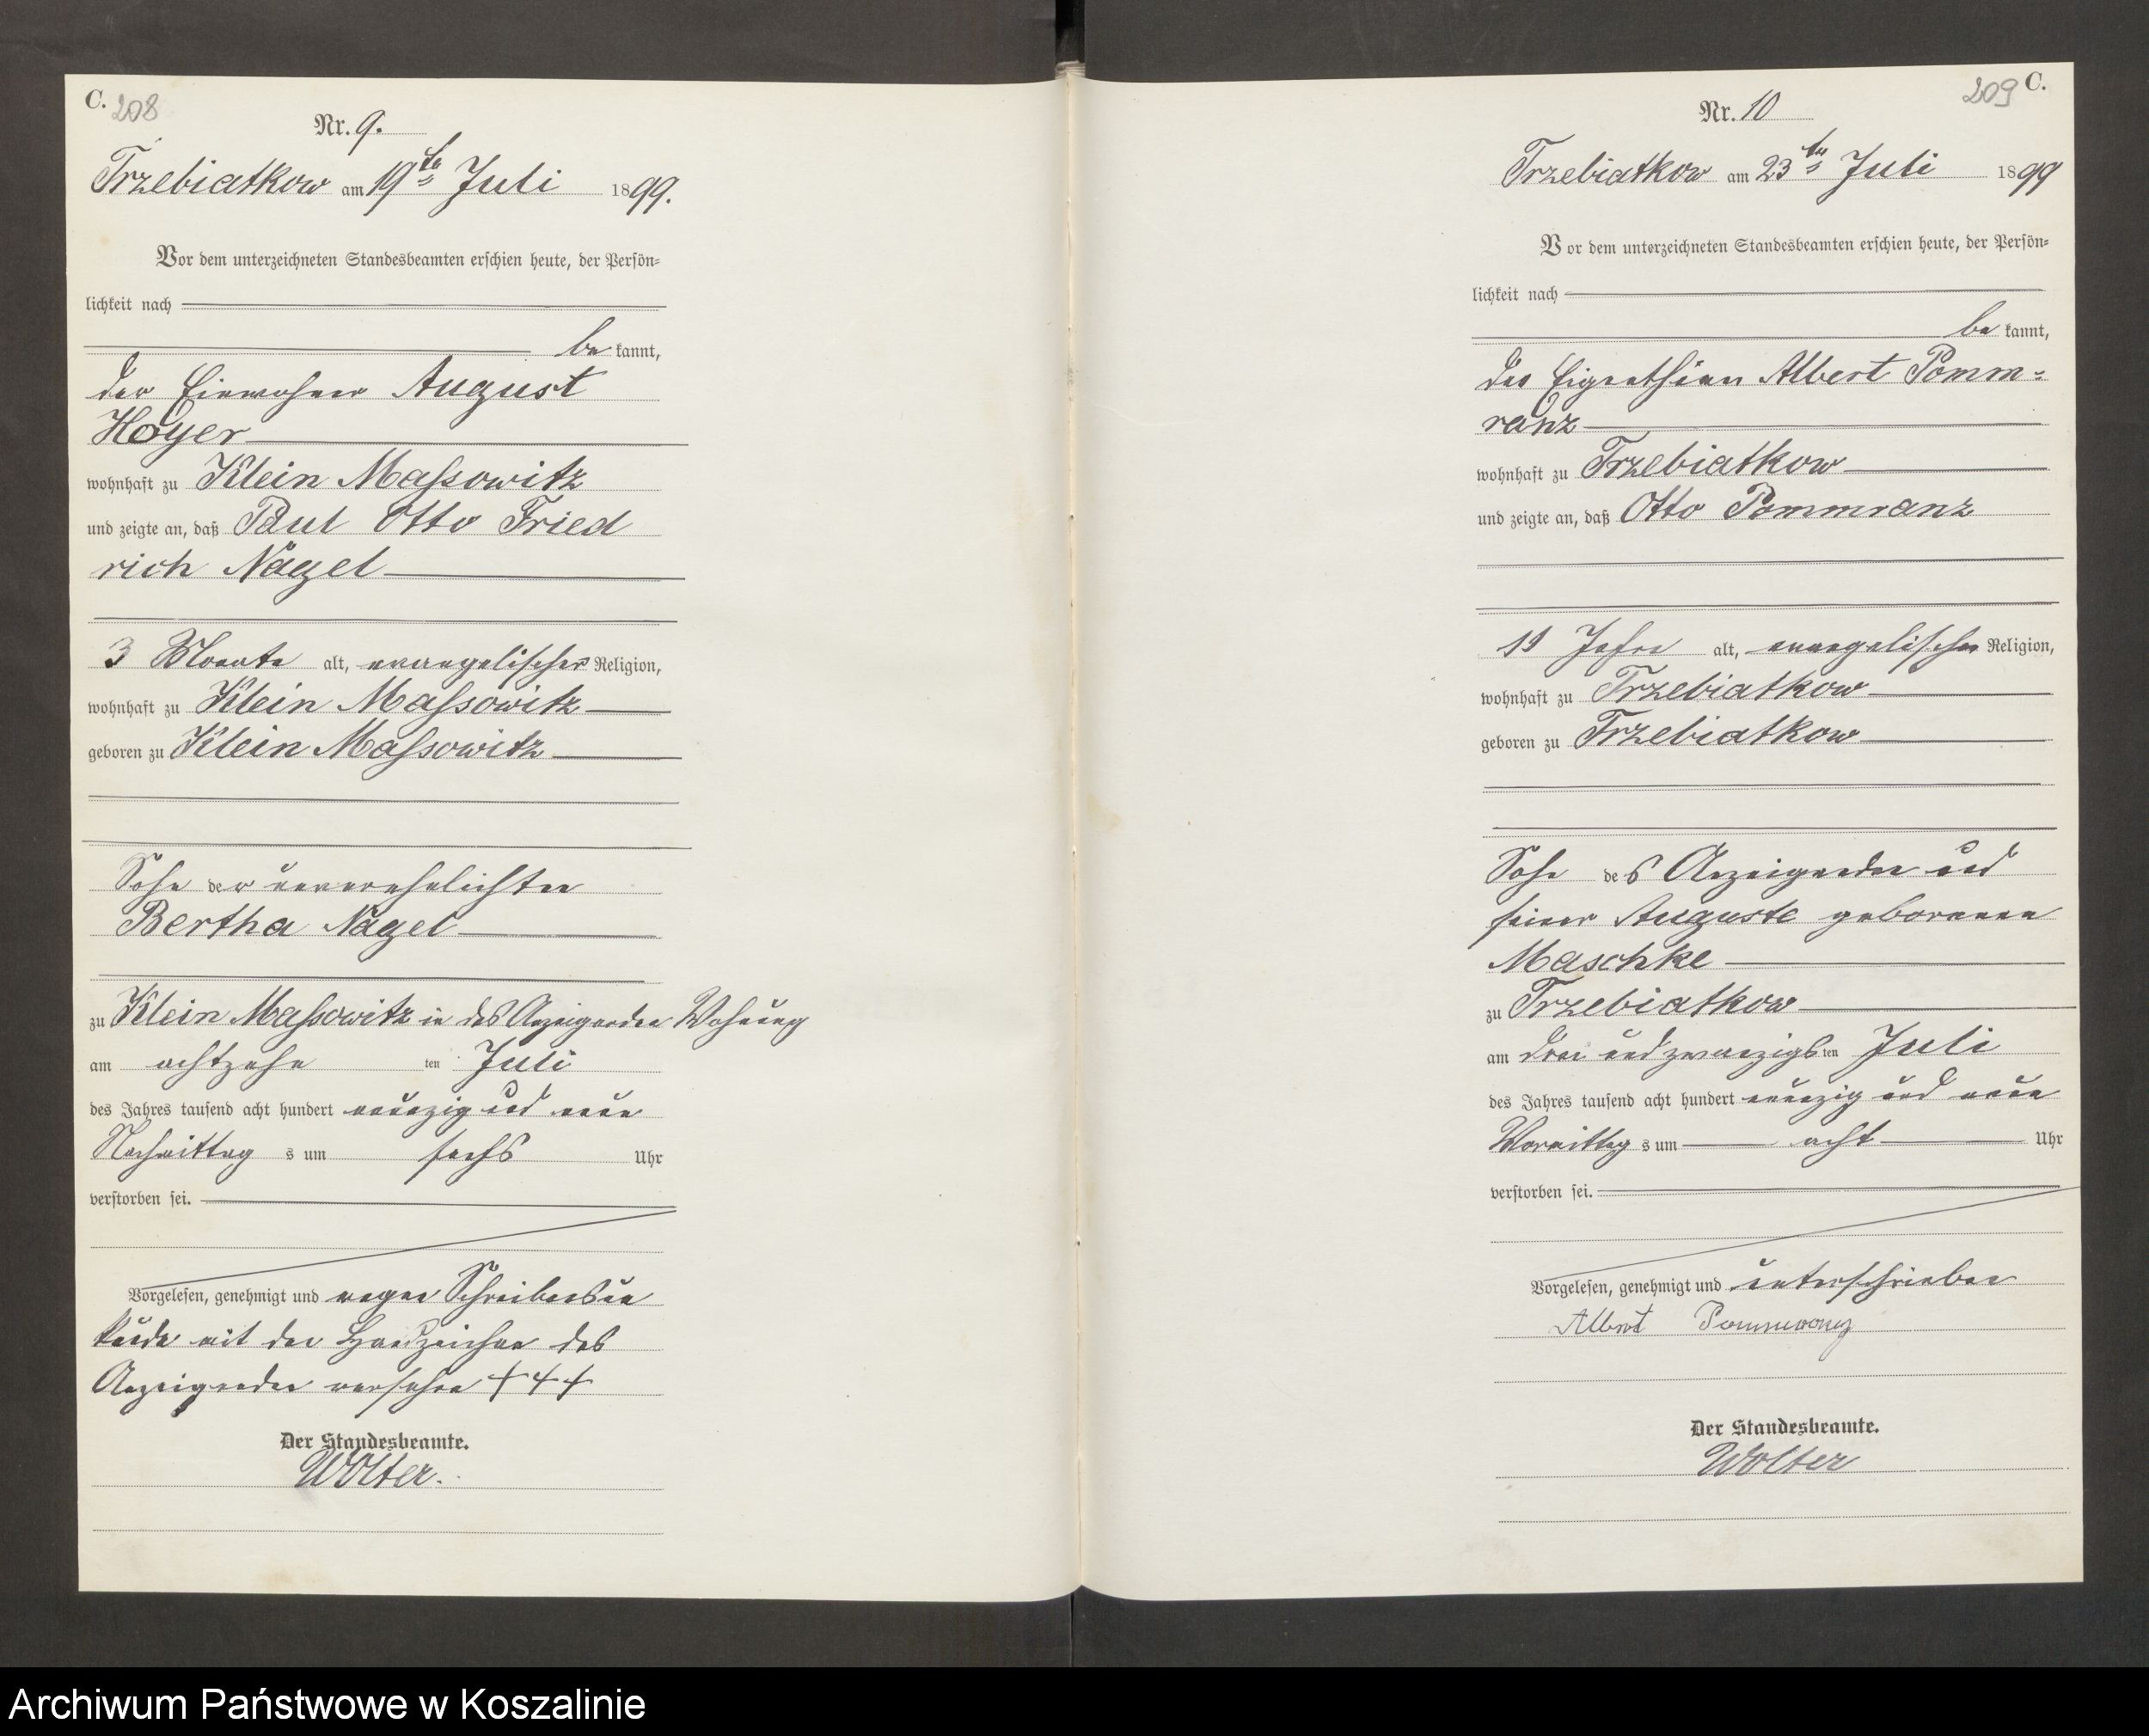 C.
208
Nr. 9.
Trzebiatkow am 19ten Juli 1899.
Vor dem unterzeichneten Standesbeamten erschien heute, der Persön=
lichkeit nach
be kannt,
der Einwohner August
Hoyer
wohnhaft zu Klein Massowitz
und zeigte an, daß Paul Otto Fried
rich Nagel
3 Monate alt, evangelischer Religion,
wohnhaft zu Klein Massowitz
geboren zu Klein Massowitz
Sohn der unverehelichten
Bertha Nagel
zu Klein Massowitz in des Anzeigenden Wohnung
am achtzehn ten Juli
des Jahres tausend acht hundert neunzig und neun
Nachmittag s um sechs Uhr
verstorben sei.
Vorgelesen, genehmigt und wegen Schreibensun
kunde mit den Handzeichen des
Anzeigenden versehen +++
Der Standesbeamte.
Wolter.
209 C.
Nr. 10
Trzebiatkow am 23ten Juli 1899
Vor dem unterzeichneten Standesbeamten erschien heute, der Persön=
lichkeit nach
be kannt,
der Eigenthümer Albert Pomm=
ranz
wohnhaft zu Trzebiatkow
und zeigte an, daß Otto Pommranz
11 Jahre alt, evangelischer Religion,
wohnhaft zu Trzebiatkow
geboren zu Trzebiatkow
Sohn des Anzeigenden und
seiner Auguste geborenen
Maschke
zu Trzebiatkow
am drei und zwanzigsten Juli
des Jahres tausend acht hundert neunzig und neun
Vormittag s um acht Uhr
verstorben sei.
Vorgelesen, genehmigt und unterschrieben
Albert Pommranz
Der Standesbeamte.
Wolter
Archiwum Państwowe w Koszalinie